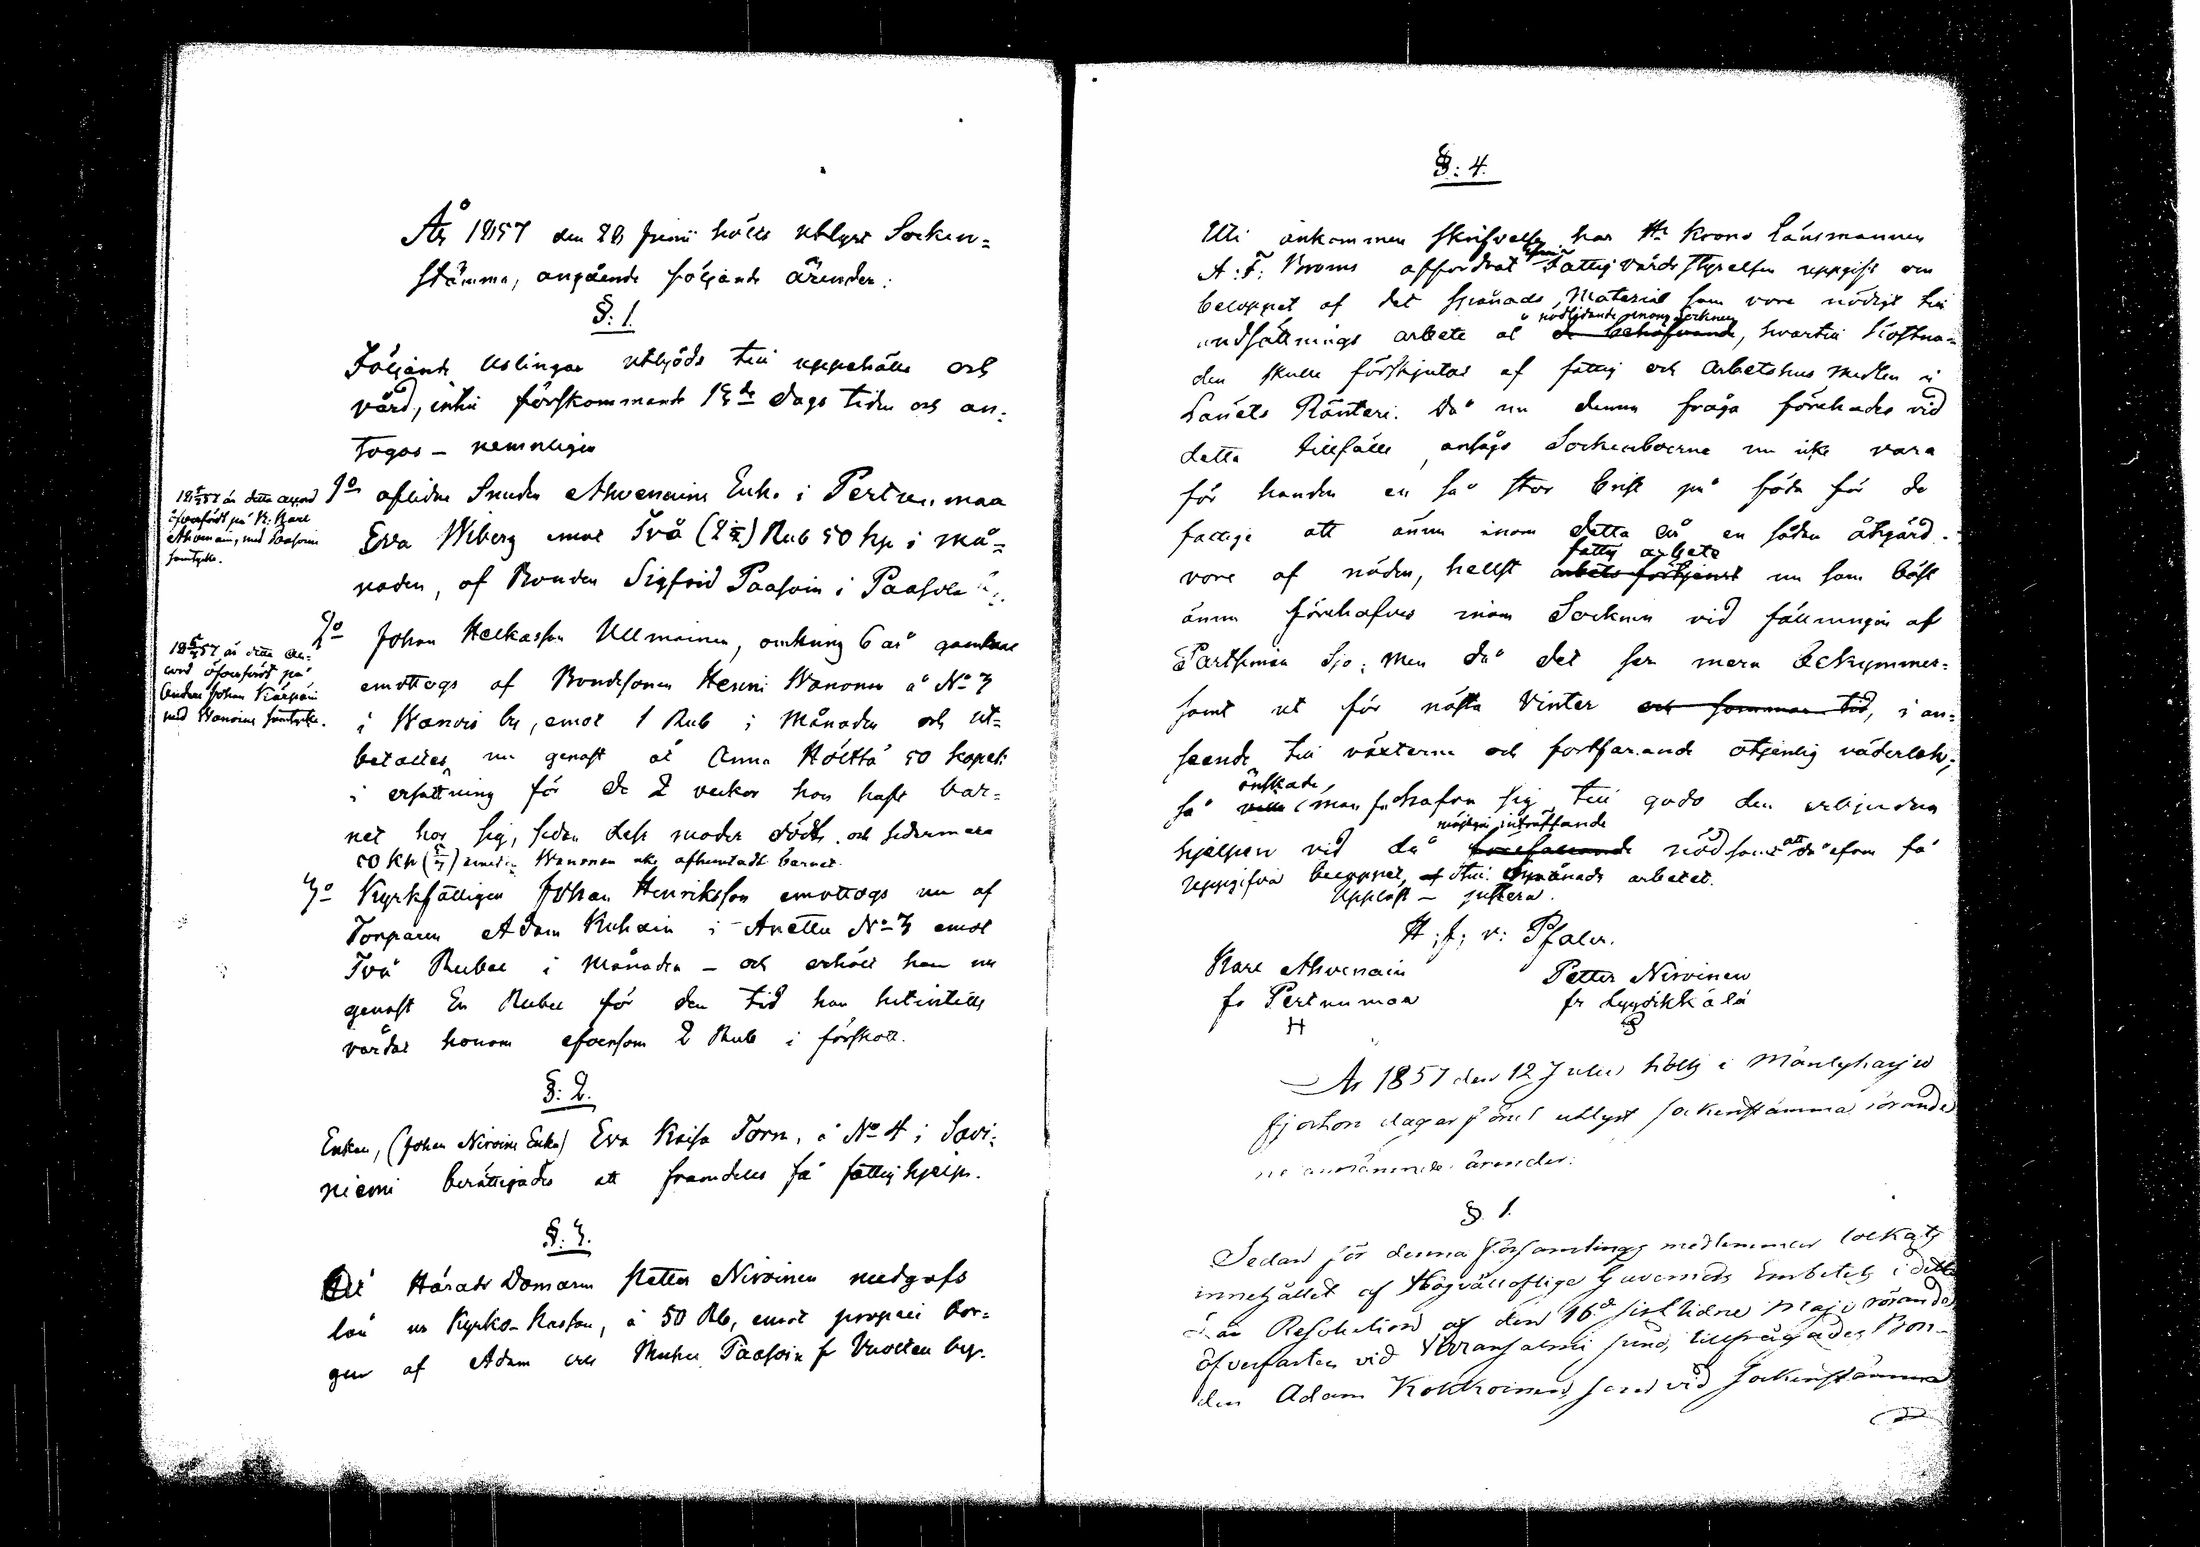 År 1857 den 28 Junii hölls utlyst Socken=
stämma, angående följande ärenden:
§: 1.
Följande uslingar utbjöds till uppehälle och
vård, intill förstkommande 15de dags tiden och an=
togos – nemnligen
1o aflidne Snuden Ahvenains Enka i Pertunmaa
Eva Wiberg emot Två (2) Rub 50 kp i må=
naden, af Bonden Sigfrid Paasoin i Paasola
18 57 är detta accord
öfverfördt på B. Karl
Ahvenain, med Paasoins
samtycke.
2o Johan Ullmainen, omkring 6 år gammal
emottogs af Bondesonen Henric Wanonen å No 3
i Wanois by, emot 1 Rub i Månaden och ut=
betaltes nu genast åt Anna Hölttä 50 kopek
i ersättning för de 2 veckor hon haft bar=
net hos sig, sedan dess moder dödt. och sedermera
50 kp emedan Wanonen icke afhemtadt barnet.
18 57 är detta ac=
cord öfverfördt på
Johan Kärpäin
med Wanoins samtycke.
3o Kyrkfattigen Johan Henriksson emottogs nu af
Torparen Adam Kuhain i Anetta No 3 emot
Två Rubel i Månaden – och erhöll han nu
genast En Rubel för den tid han hittintills
vårdat honom äfvensom 2 Rub i förskott.
§: 2.
Enkan, (Johan Nirvins Enka) Eva Kaisa Torn, å No 4 i Savi=
niemi berättigades att framdeles få fattighjelp.
§: 3.
Åt Härads Domaren Petter Nirvinen medgafs
lån ur Kyrko-Kassan, à 50 Rb, emot proprie bor=
gen af Adam och Paasoin fr Vuolten by.
§: 4.
Uti ankommen skrifvelse har Hr Krono Länsmannen
A: F: Broms affordrat Fattigvårds styrelsen uppgift om
beloppet af det spånads Material som vore nödigt till
undsättnings arbete åt de behöfvande, hvartill kostna=
nödlidande inom Socknen
den skulle förskjutas af fattig och Arbetshus medlen i
Länets Ränteri. Då nu denna fråga förehades vid
detta tillfälle, ansågo Sockenboerne nu icke vara
för handen en så stor brist på föda för de
fattige att ännu inom detta år en sådan åtgärd
vore af nöden, hellst arbets förtjenst nu som bäst
fattig arbete
ännu förehafves inom Socknen vid fällningen af
Partsimen Sjö; Men då det ser mera bekymmer=
samt ut för nästa Vinter och sommar tid, i an=
seende till växterne och fortfarande otjenlig väderlek;
så ville man förbehafva sig till godo den erbjudna
önskade,
hjelpen vid då förefallande nöd samt att då äfven få
möjligen inträffande
uppgifva beloppet, af till Spånads arbetet.
Uppläst – justera.
H: J: v: Pfaler.
Karl Ahvenain
fr Pertunmaa
H
Petter Nirvinen
fr Lyydikkälä
År 1857 den 12 Julii hölls i Mäntyharju
fjorton dagar förut utlyst sockenstämma rörande
nedannämnde ärender:
§ 1.
Sedan för denna församlings medlemmar tolkats
innehållet af Högvällofliga Guvernörs Embetets i detta
Län Resolution af den 16de sistlidne Maji rörande
öfverfarten vid sund, tillfrågades Bon-
den Adam Kokkoinen, som vid sockenstämma